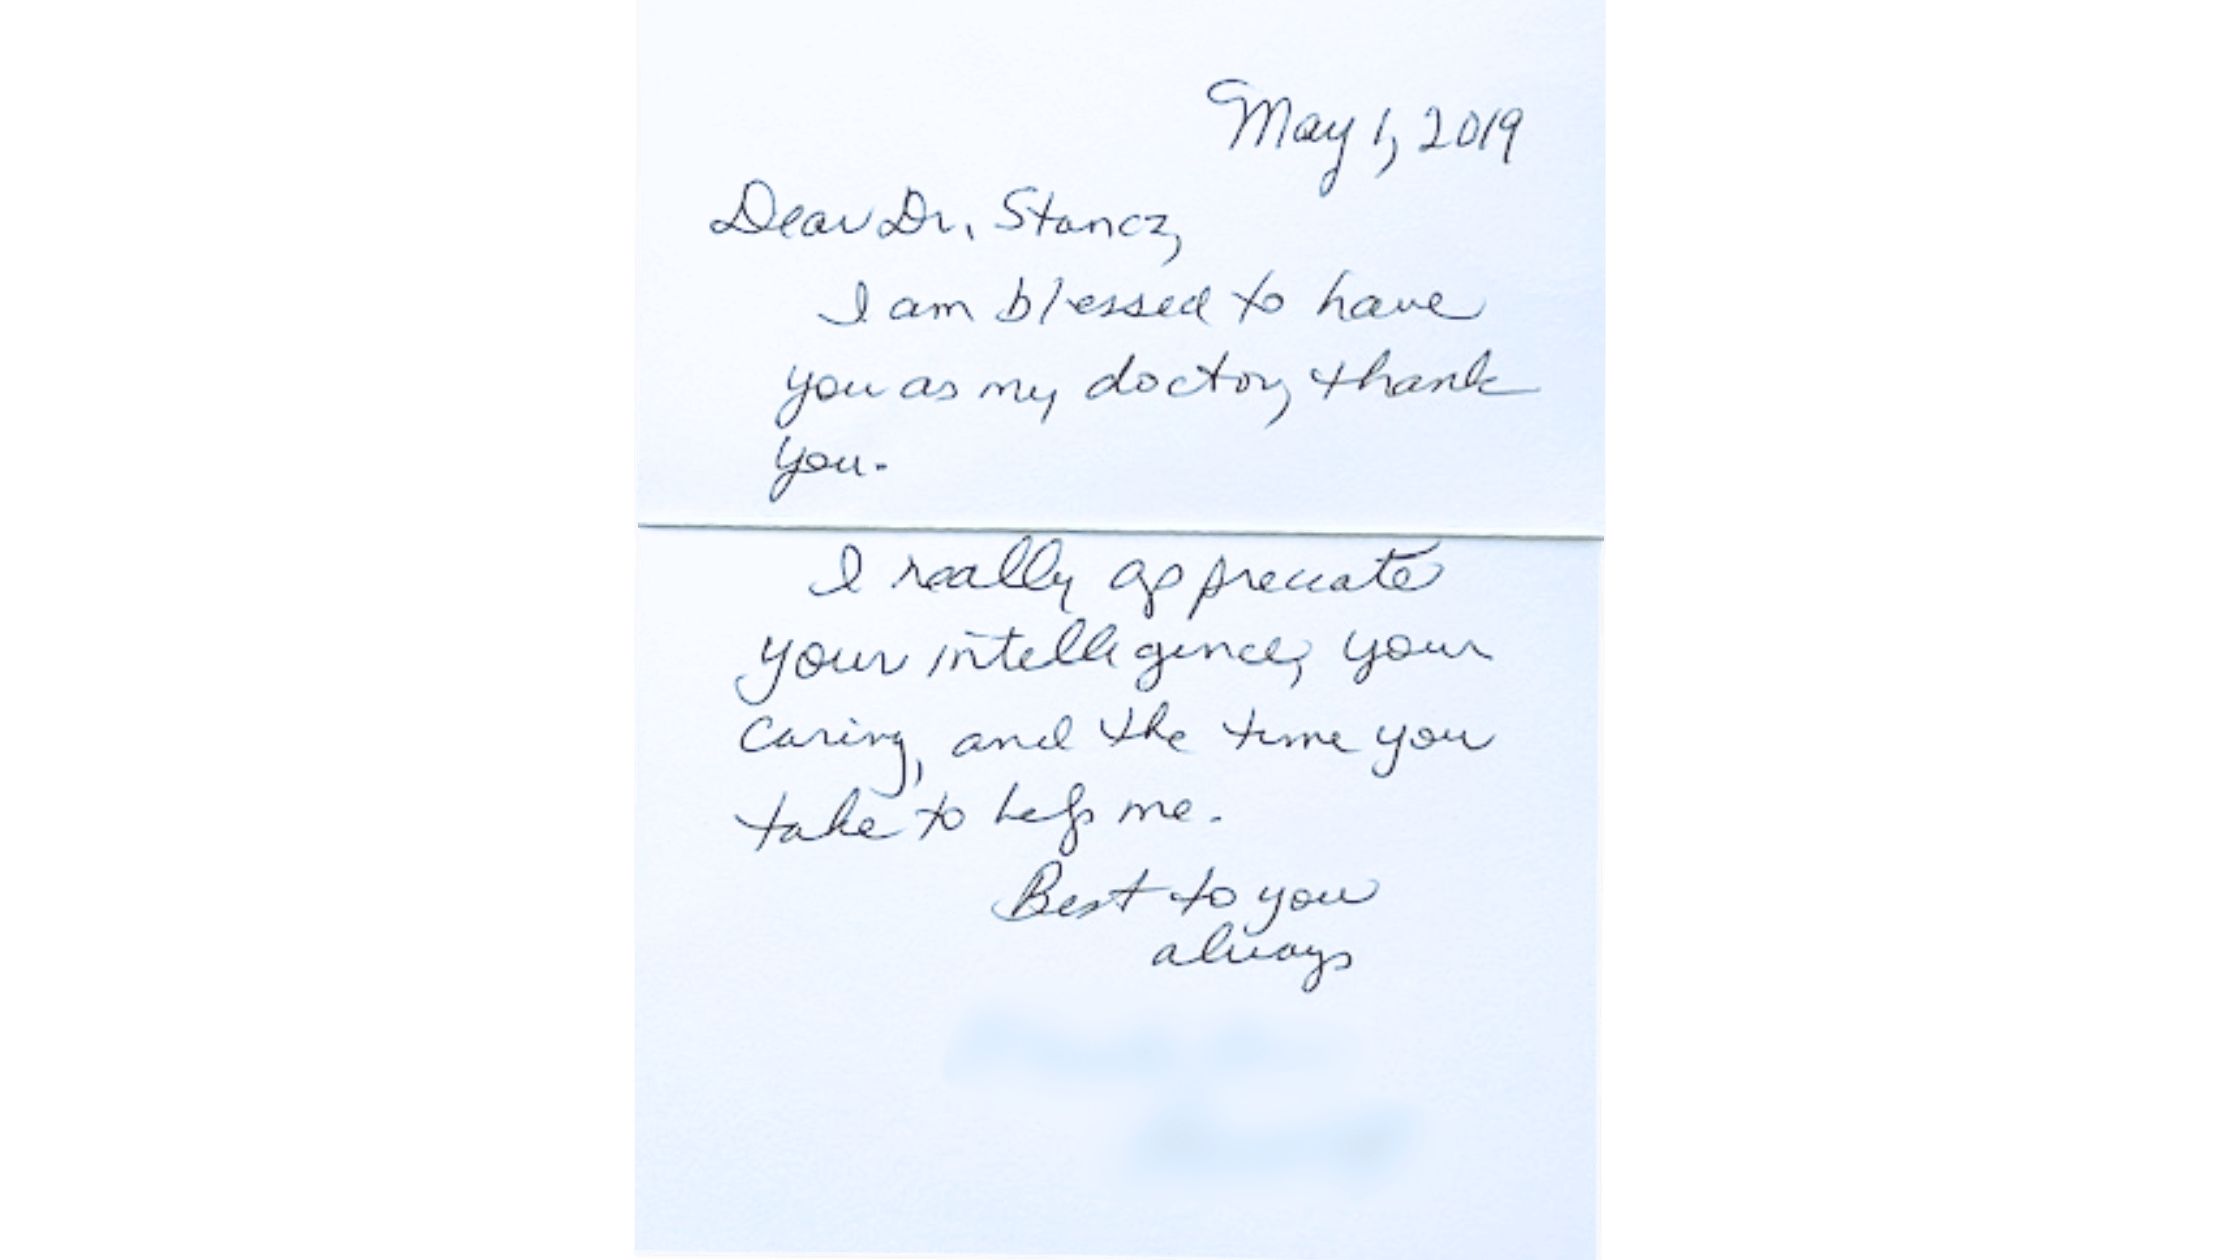 May 1, 2019
Dear Dr. Stancz,
I am blessed to have
you as my doctor, thank
you.
I really appreciate
your intelligence, your
caring, and the time you
take to help me.
Best to you
always